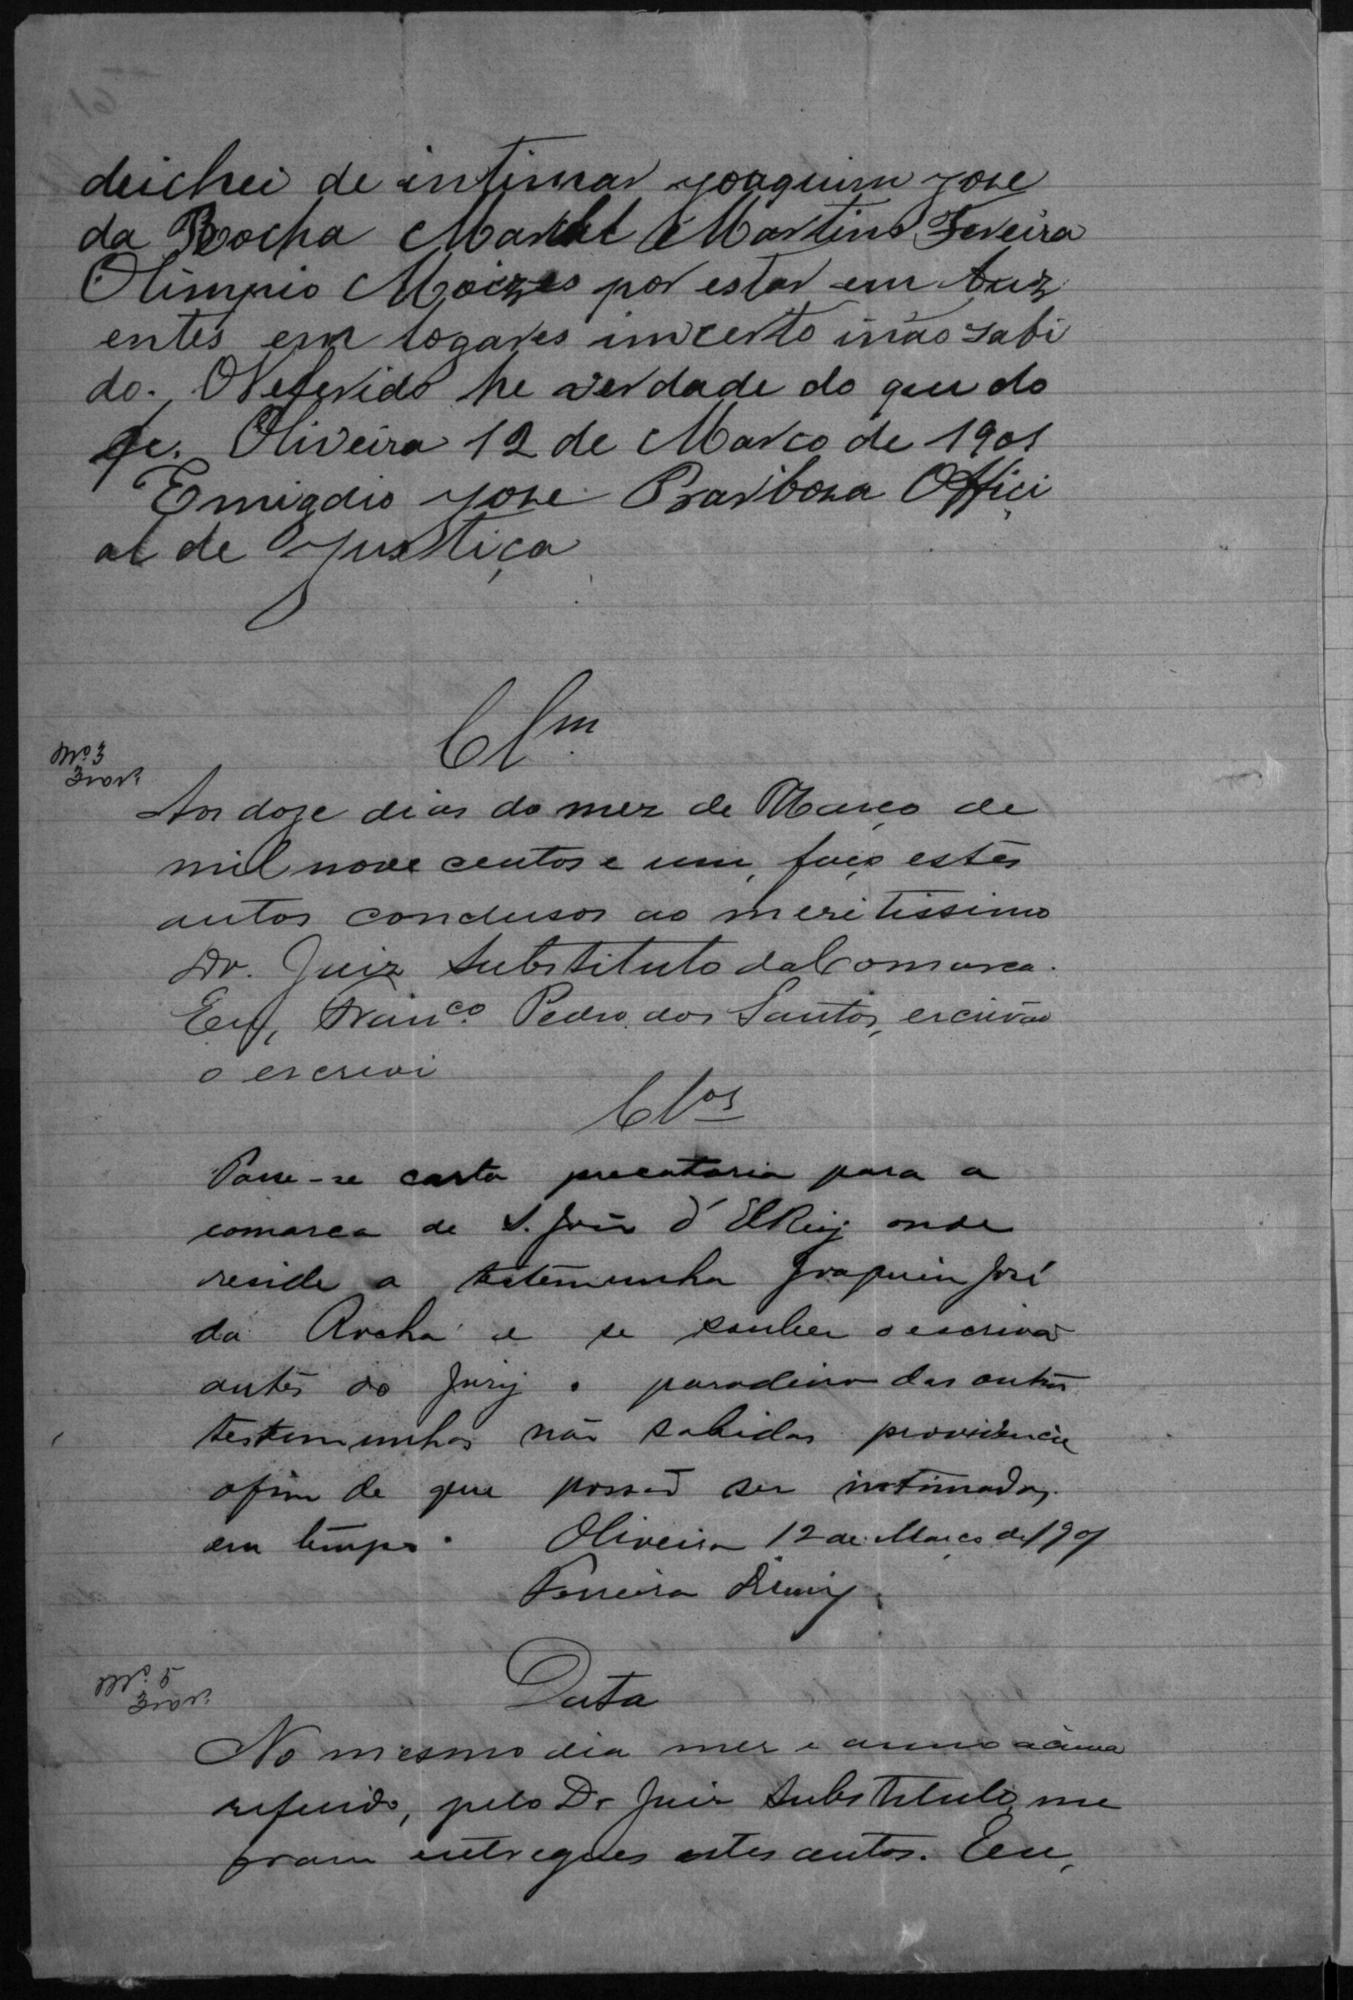 deichei de intimar Joaquim Jose
da Rocha Martins Fereira
Olimpio Moizes por estar em Auz
entes em logares imcerto inão sabi
do. O Referido he verdade do que do
fe. Oliveira 12 de Marco de 1901
Emigdio Jose Barboza Offici
al de Justiça
Clm
Nº 3
Aos doze dias do mez de Março de
mil nove centos e um, faço estes
autos conclusos ao meritissimo
Dr. Juiz Substituto da Comarca.
Eu, Franco Pedro dos Santos, escrivão
o escrevi
Clos
Passe-se carta precatoria para a
comarca de S. João d'El Rey onde
reside a testemunha Joaquim José
da Rocha e se souber o escrivão
antes do Jury o paradeiro das outras
testemunhas não sabidas providencie
afim de que possão ser intimadas
em tempo. Oliveira 12 de Março de 1901
Ferreira
Nº 5
Data
No mesmo dia mez e anno acima
referido, pelo Dr Juiz Substituto me
foram entregues estes autos. Eu,